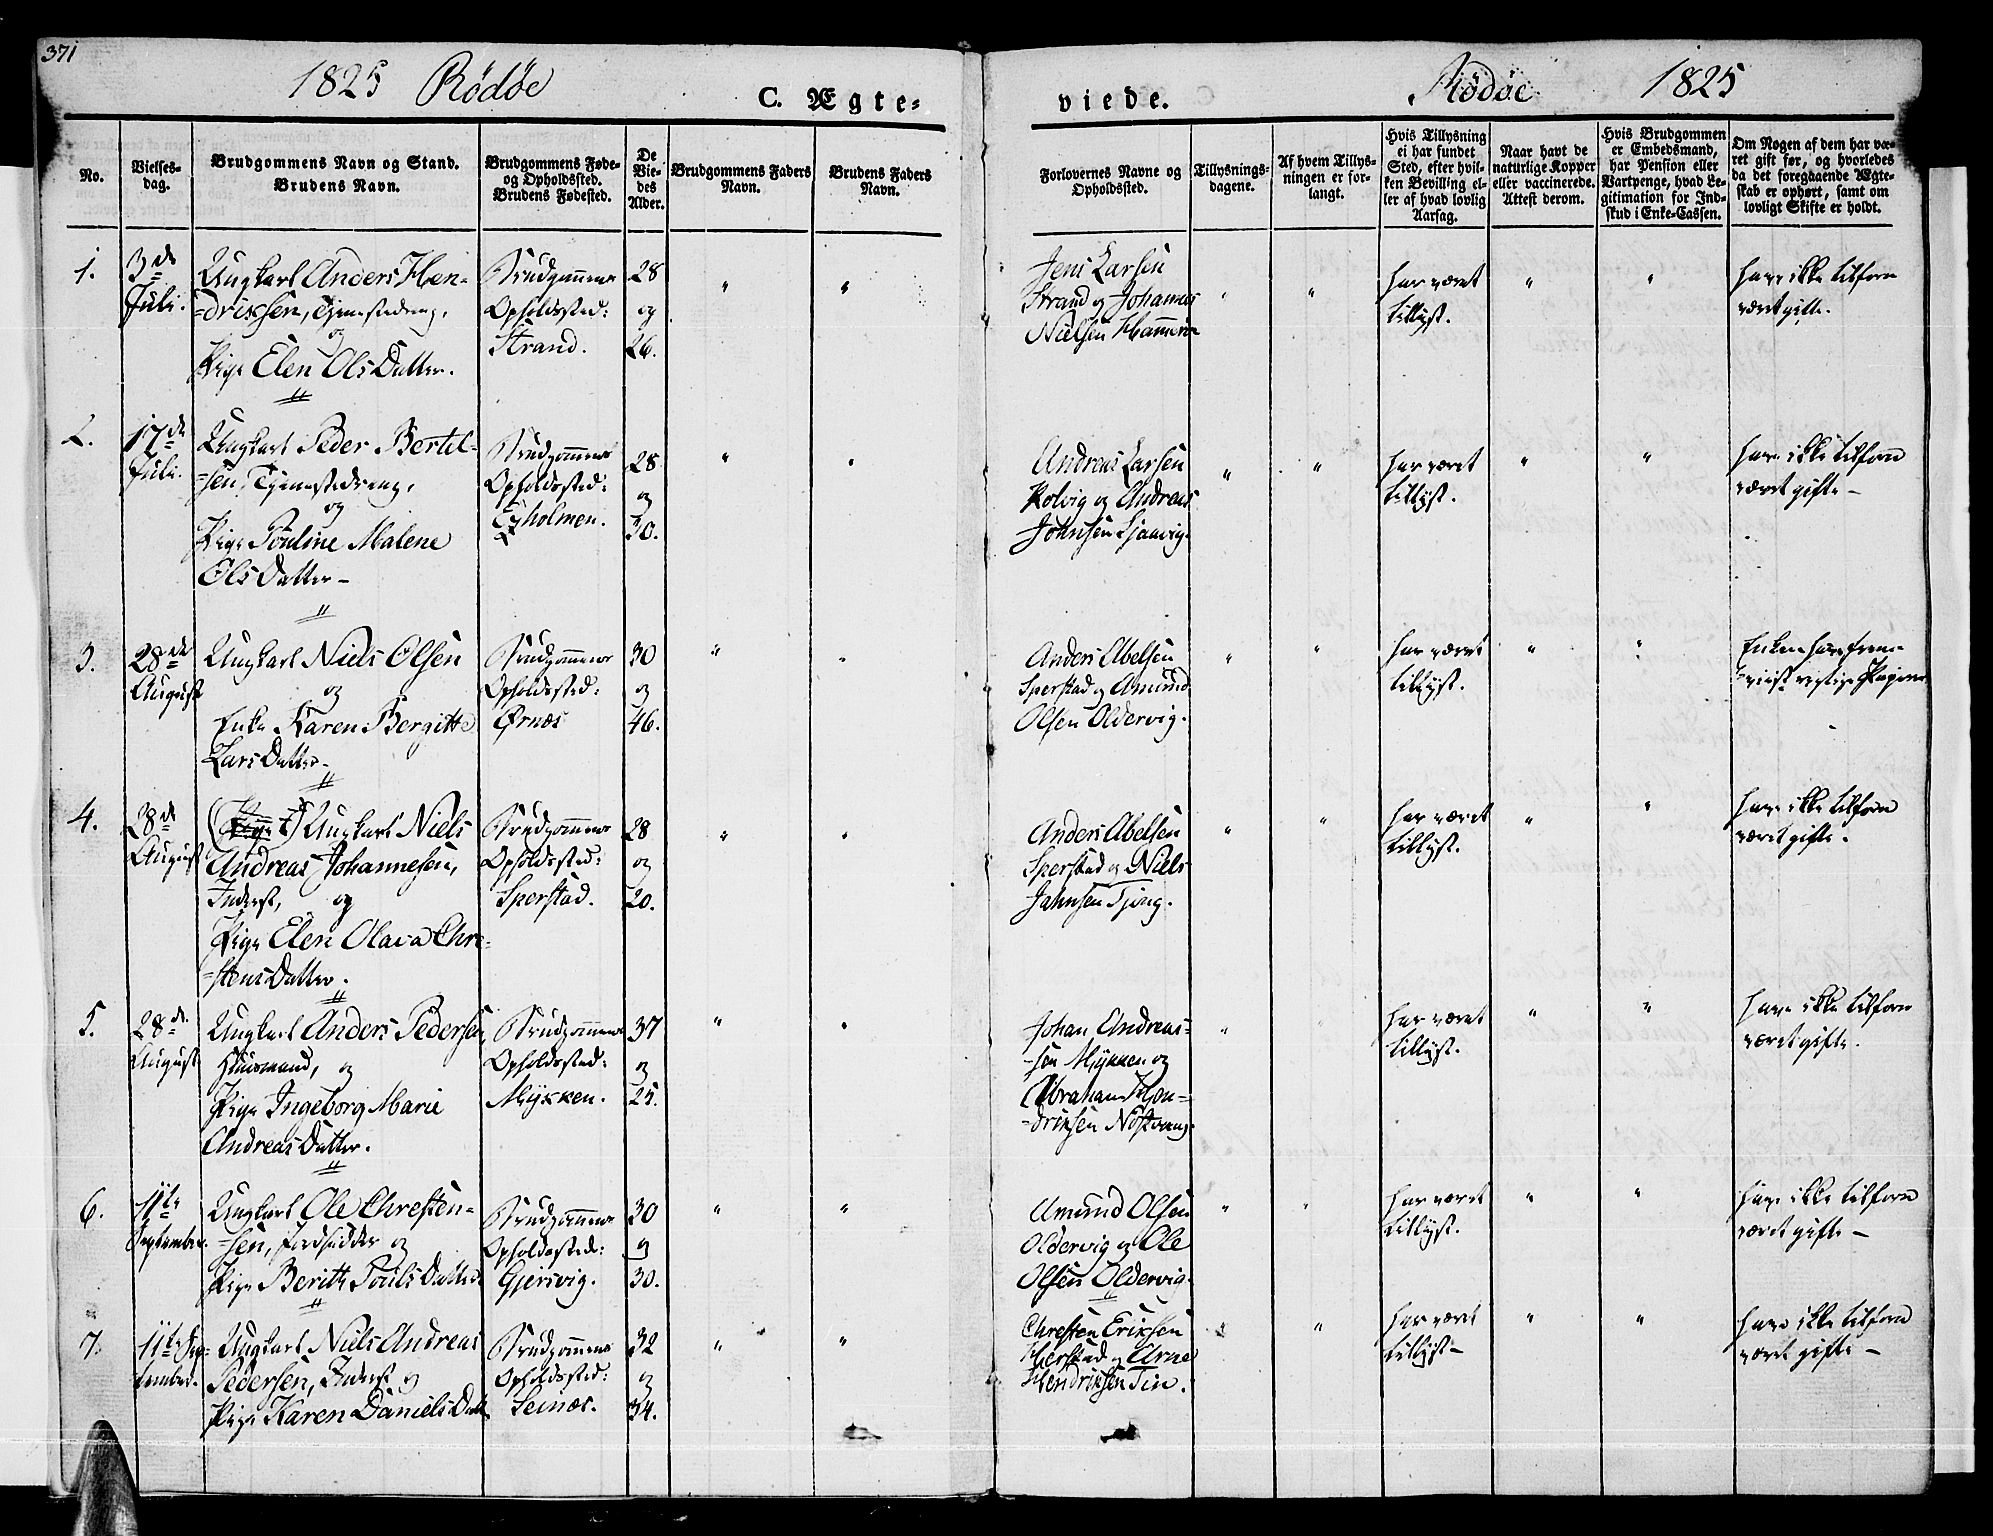 371
1825 Rödöe
C. Ægte-
viede.
Rödöe 1825
No.
Vielses-
dag.
Brudgommens Navn og Stand.
Brudens Navn.
Brudgommens Føde-
og Opholdssted.
Brudens Fødested.
De
Vie-
des
Alder.
Brudgommens Faders
Navn.
Brudens Faders
Navn.
Forlovernes Navne og
Opholdssted.
Tillysnings-
dagene.
Af hvem Tillys-
ningen er for-
langt.
Hvis Tillysning
ei har fundet
Sted, efter hvil-
ken Bevilling el-
ler af hvad lovlig
Aarsag.
Naar havt de
naturlige Kopper
eller vaccinerede.
Attest derom.
Hvis Brudgommen
er Embedsmand,
har Pension eller
Vartpenge, hvad Le-
gitimation for Ind-
skud i Enke-Cassen.
Om Nogen af dem har væ-
ret gift før, og hvorledes
da det foregaaende Ægte-
skab er ophørt, samt om
lovligt Skifte er holdt.
1.
3de
Juli.
Ungkarl Anders Hen-
=drixsen, Tjenestedreng,
og
Pige Elen OlsDatter.
Brudgommens
Opholdssted:
Strand.
28
og
26.
" "
Jens Larsen
Strand og Johannes
Nielsen Hammern
" "
har været
tillyst.
" "
have ikke tilforn
været gifte.
2.
17de
Juli.
Ungkarl Peder Bertel-
=sen, Tjenestedreng,
og
Pige Pouline Malene
OlsDatter –
Brudgommens
Opholdssted:
Eyholmen.
28
og
30.
" "
Andreas Larsen
Kolvig og Andreas
Johnsen Sjaavig.
" "
har været
tillyst.
" "
have ikke tilforn
været gifte –
3.
28de
August
Ungkarl Niels Olsen
og
Enke Karen Bergitte
LarsDatter –
Brudgommens
Opholdssted:
Ørnæs
30
og
46.
" "
Anders Abelsen
Sperstad og Amund
Olsen Oldervig.
" "
har været
tillyst.
" "
Enken have frem-
=viist
4.
28de
August
(Pige E) Ungkarl Niels
Andreas Johannesen,
Inderst, og
Pige Elen Olava Chre-
=stensDatter.
Brudgommens
Opholdssted:
Sperstad.
28
og
20.
" "
Anders Abelsen
Sperstad og Niels
Jahnsen Tjong.
" "
har været
tillyst.
" "
have ikke tilforn
været gifte.
5.
28de
August
Ungkarl Anders Pedersen,
Huusmand, og
Pige Ingeborg Marie
AndreasDatter.
Brudgommens
Opholdssted:
Myxken.
37
og
25.
" "
Johan Andreas-
=sen Myxken og
Abraham Hen-
=driksen Nöstvang.
" "
har været
tillyst.
" "
have ikke tilforn
været gifte.
6.
11te
September.
Ungkarl Ole Chresten-
=sen, Jordsidder og
Pige Berith PoulsDatter
Brudgommens
Opholdssted:
Gjersvig.
30
og
30.
" "
Amund Olsen
Oldervig og Ole
Olsen Oldervig.
" "
har været
tillyst.
" "
have ikke tilforn
været gifte –
7.
11te Sep-
tember.
Ungkarl Niels Andreas
Pedersen, Inderst og
Pige Karen DanielsDatt.
Brudgommens
Opholdssted:
Selnæs.
32
og
34.
" "
Chresten Eriksen
Hjerstad og Arne
Hendriksen Tin.
" "
har været
tillyst –
" "
have ikke tilforn
været gifte –